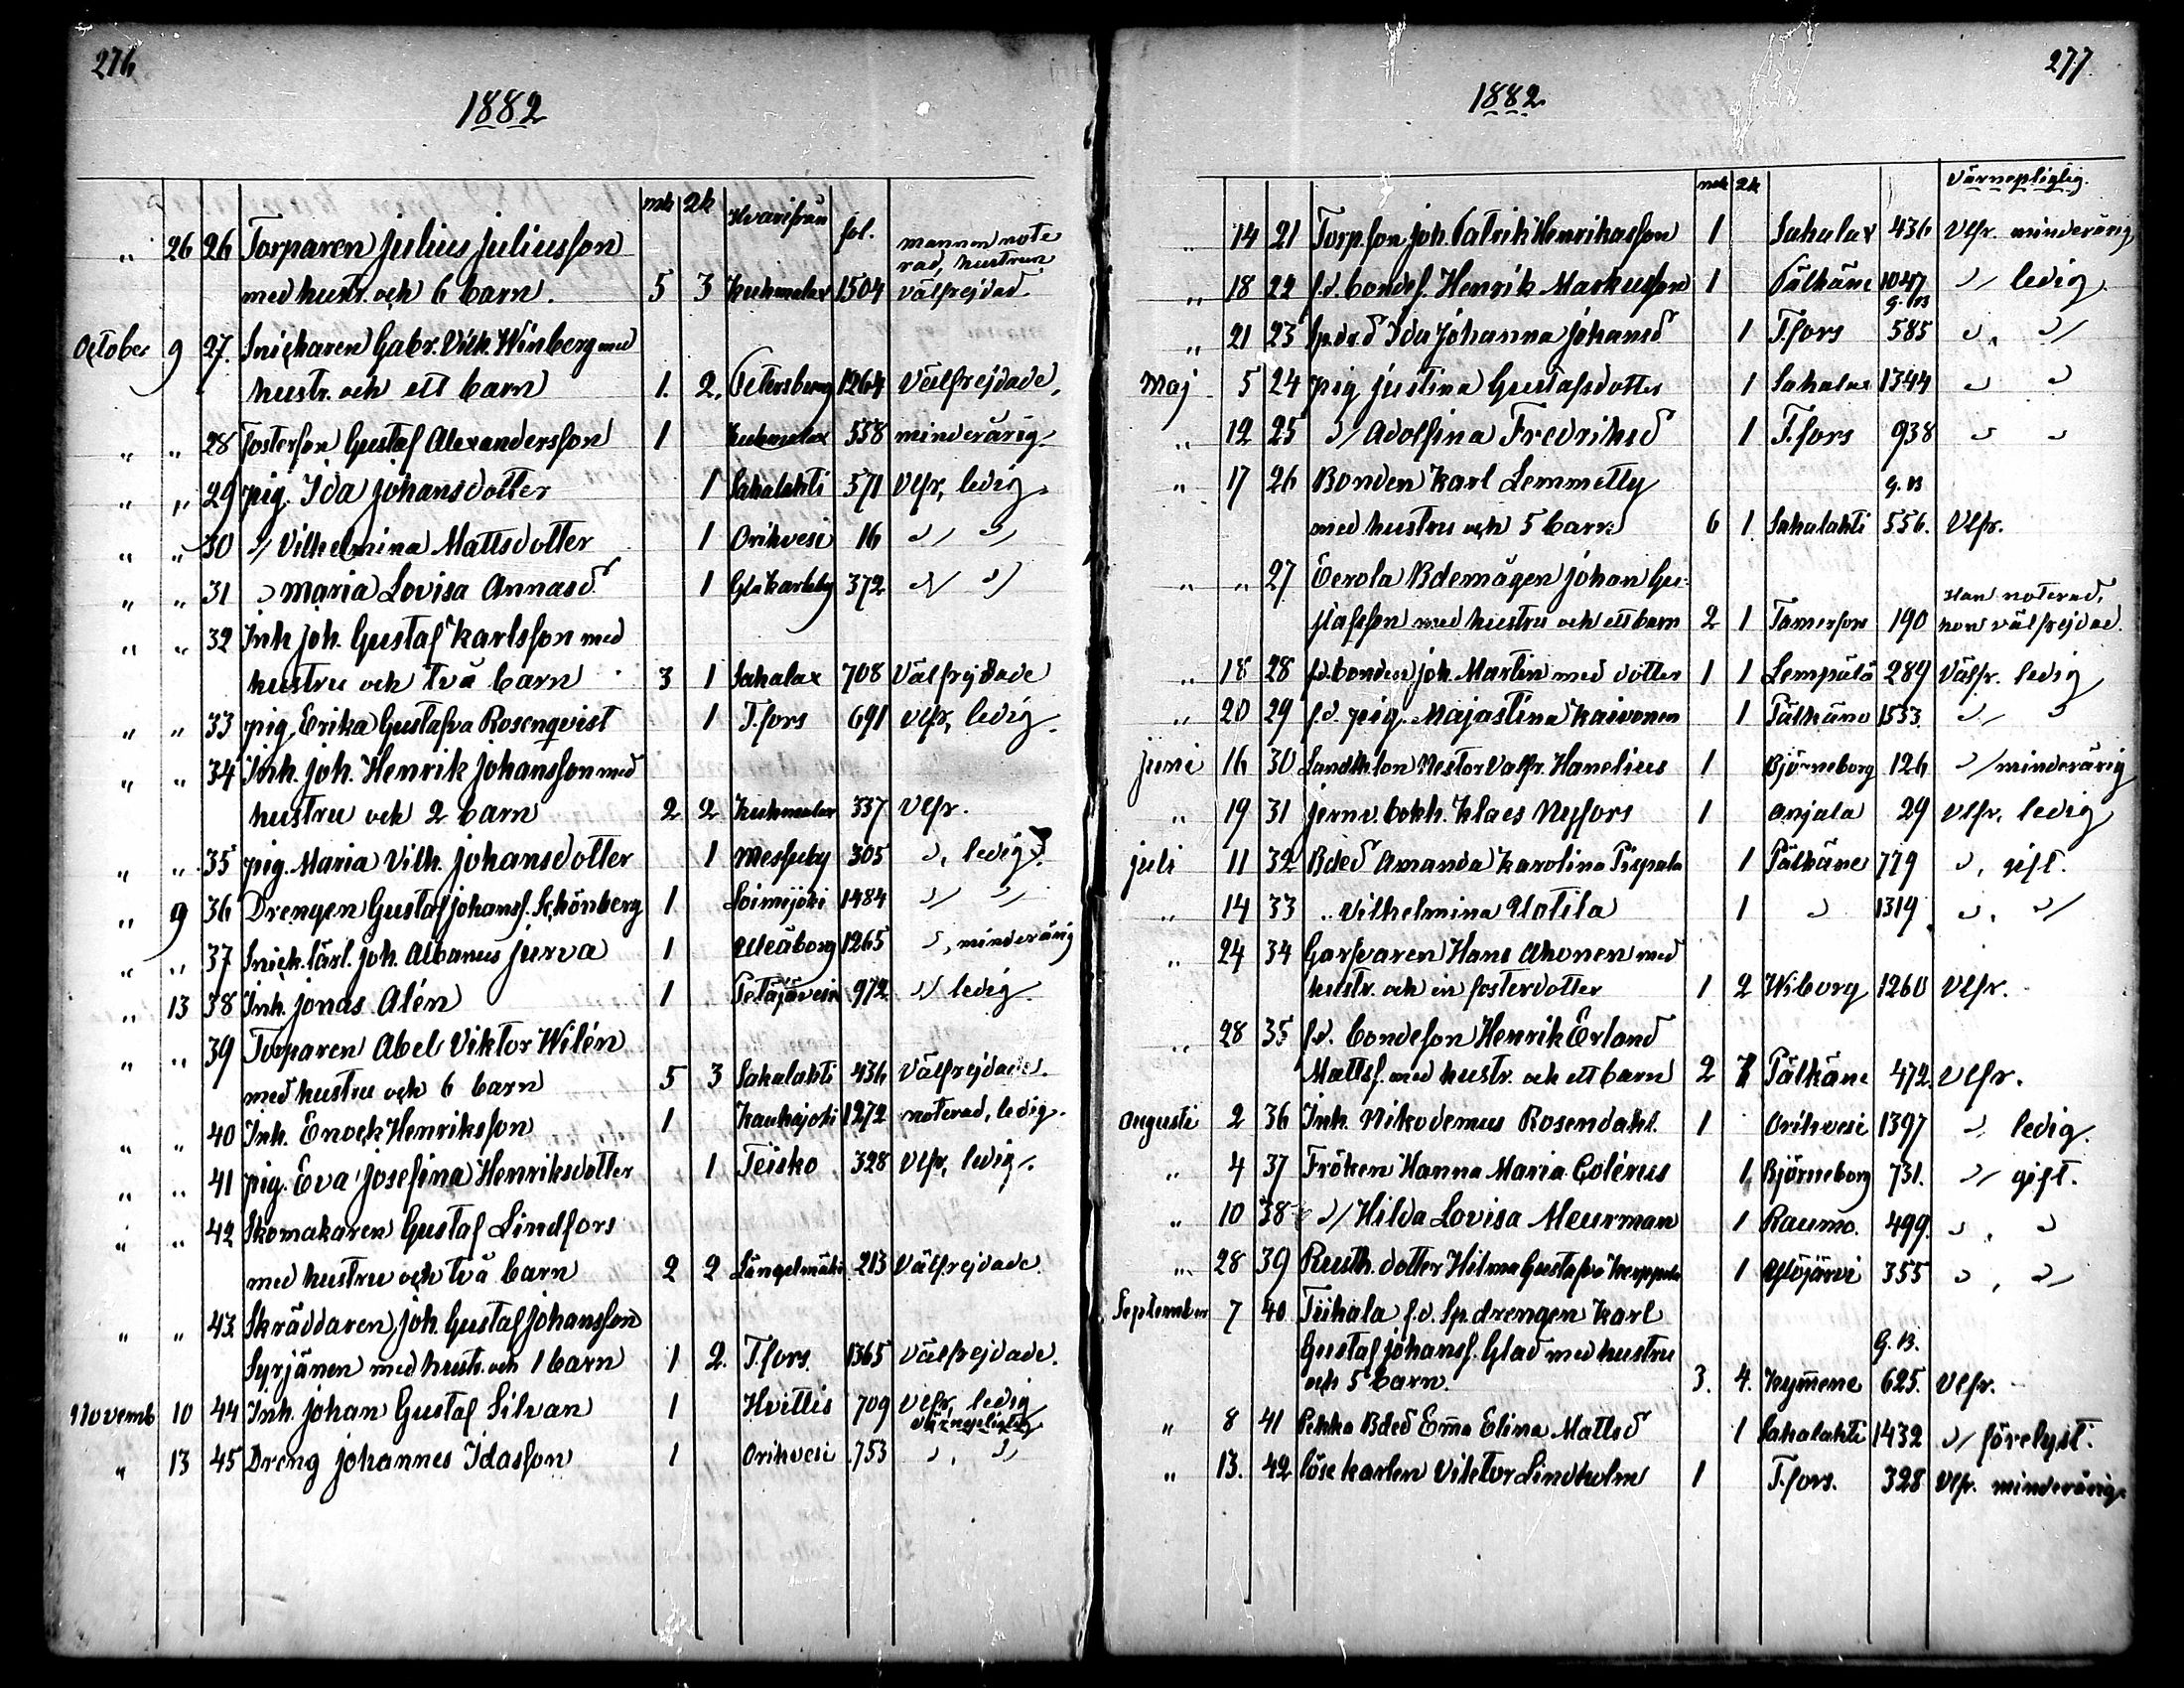 276
1882
mk 2k Hvarifrån fol.
" 26 26 Torparen Julius Juliusson mannen note
rad, hustrun
med hustr. och 6 barn. 5 3 Kuhmalax 1504 välfrejdad.
October 9 27. Snickaren Gabr. Vilh. Winberg med
hustr. och ett barn 1. 2. Petersburg 1264 Välfrejdade.
" " 28 Fosterson Gustaf Alexandersson 1 Kuhmalax 558 minderårig.
" " 29 pig. Ida Johansdotter 1 Sahalahti 571 Vlfr, ledig.
" " 30 " Vilhelmina Mattsdotter 1 Orihvesi 16 " "
" " 31 " Maria Lovisa Annasd 1 Gla Karleby 372 " "
" " 32 Inh Joh. Gustaf Karlsson med
hustru och två barn 3 1 Sahalax 708 Välfrejdade
" " 33 pig. Erika Gustafva Rosenqvist 1 T.fors 691 Vlfr, ledig.
" " 34 Inh. Joh. Henrik Johansson med
hustru och 2 barn 2 2 Kuhmalax 337 Vlfr.
" " 35 pig. Maria Vilh. Johansdotter 1 Messuby 305 ", ledig.
" 9 36 Drengen Gustaf Johanss. Schönberg 1 Loimijoki 1484 " "
" " 37 Snick.lärl. Joh. Albanus Jurva 1 Uleåborg 1265 ", minderårig
" 13 38 Inh. Jonas Alén 1 Petäjävesi 972 " ledig.
" " 39 Torparen Abel Viktor Wilén
med hustru och 6 barn 5 3 Sahalahti 436 Välfrejdade.
" " 40 Inh. Enock Henriksson 1 Kauhajoki 1272 noterad, ledig.
" " 41 pig. Eva Josefina Henriksdotter 1 Teisko 328 Vlfr, ledig.
" " 42 Skomakaren Gustaf Lindfors
med hustru och två barn 2 2 Längelmäki 213 Välfrejdade.
" " 43 Skräddaren Joh. Gustaf Johansson
Syrjänen med hustr. och 1 barn 1 2. T.fors. 1365 Välfrejdade.
Novemb 10 44 Inh. Johan Gustaf Silvan 1 Hvittis 709 Vlfr, ledig
värnepligtig
" 13 45 Dreng Johannes Idasson 1 Orihvesi 753 ", "
277
1882.
mk 2k Värnepligtig.
" 14 21 Torpson Joh. Patrik Henrikasson 1 Sahalax 436 Vlfr. minderårig
" 18 22 f.d. bondes. Henrik Markusson 1 Pälkäne 1047 " ledig
g. B
" 21 23 sp.dr.d Ida Johanna Johansd 1 T.fors 585 ", "
Maj 5 24 pig Justina Gustafsdotter 1 Sahalax 1344 " "
" 12 25 " Adolfina Fredriksd 1 T.fors 938 " "
" 17 26 Bonden Karl Lemmetty g. B
med hustru och 5 barn 6 1 Sahalahti 556. Vlfr.
" " 27 Eerola Bdemågen Johan Gu-
Han noterad,
stafsson med hustru och ett barn 2 1 Tamerfors 190 hon välfrejdad.
" 18 28 f.d. bonden Joh. Martin med dotter 1 1 Lempälä 289 Välfr. ledig
" 20 29 f.d. pig. Majastina Kaivonen 1 Pälkäne 1553. " "
Juni 16 30 Landtk.son Nestor Valfr. Hanelius 1 Björneborg 126 " minderårig
" 19 31 jernv. bokh. Klaes Nyfors 1 Anjala 29 Vlfr. ledig
Juli 11 32 Bded Amanda Karolina Pispala 1 Pälkäne 779 ", gift.
" 14 33 " Vilhelmina Uotila 1 " 1319 ", "
" 24 34 Garfvaren Hans Ahonen med
hustr. och en fosterdotter 1 2 Wiborg 1260 Vlfr.
" 28 35 f.d. bondeson Henrik Erland
Mattss. med hustr. och ett barn 2 1 Pälkäne 472. Vlfr.
Augusti 2 36 Inh. Nikodemus Rosendahl 1 Orihvesi 1397 " ledig.
" 4 37 Fröken Hanna Maria Colérus 1 Björneborg 731. " gift.
" 10 38 " Hilda Lovisa Meurman 1 Raumo. 499 ", "
" 28 39 Rusth. dotter Hilma Gustafva 1 Ylöjärvi 355 ", "
September 7 40 Tiihala f.d. Sp. drengen Karl
Gustaf Johanss. Glad med hustru G. B.
och 5 barn. 3. 4. Kymmene 625. Vlfr.
" 8 41 Pekka Bded Emma Elina Mattsd 1 Sahalahti 1432 " förelyst.
" 13. 42 löse karlen Viktor Lindholm 1 T.fors. 328 Vlfr. minderårig.